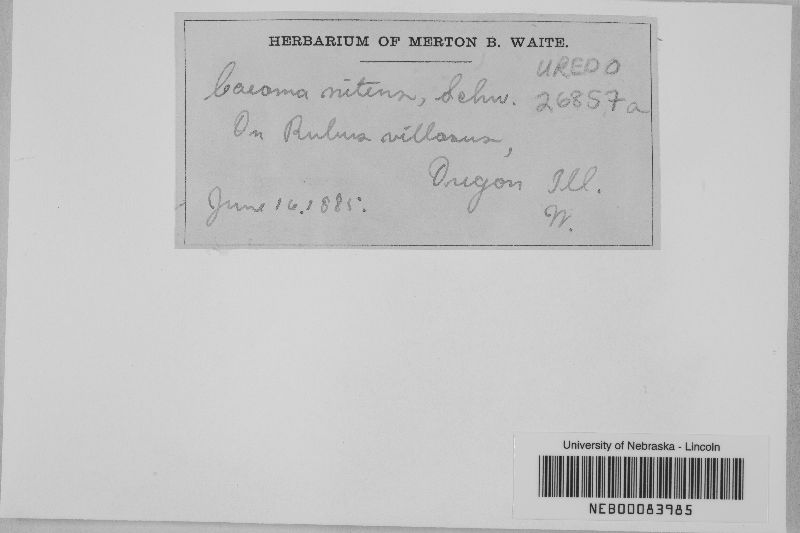 HERBARIUM OF MERTON B. WAITE.
UREDO
Caeoma nitens, Schw. 26857a
On Rubus villosus,
Oregon Ill.
June 16, 1885.
W.
University of Nebraska - Lincoln
NEB00083985